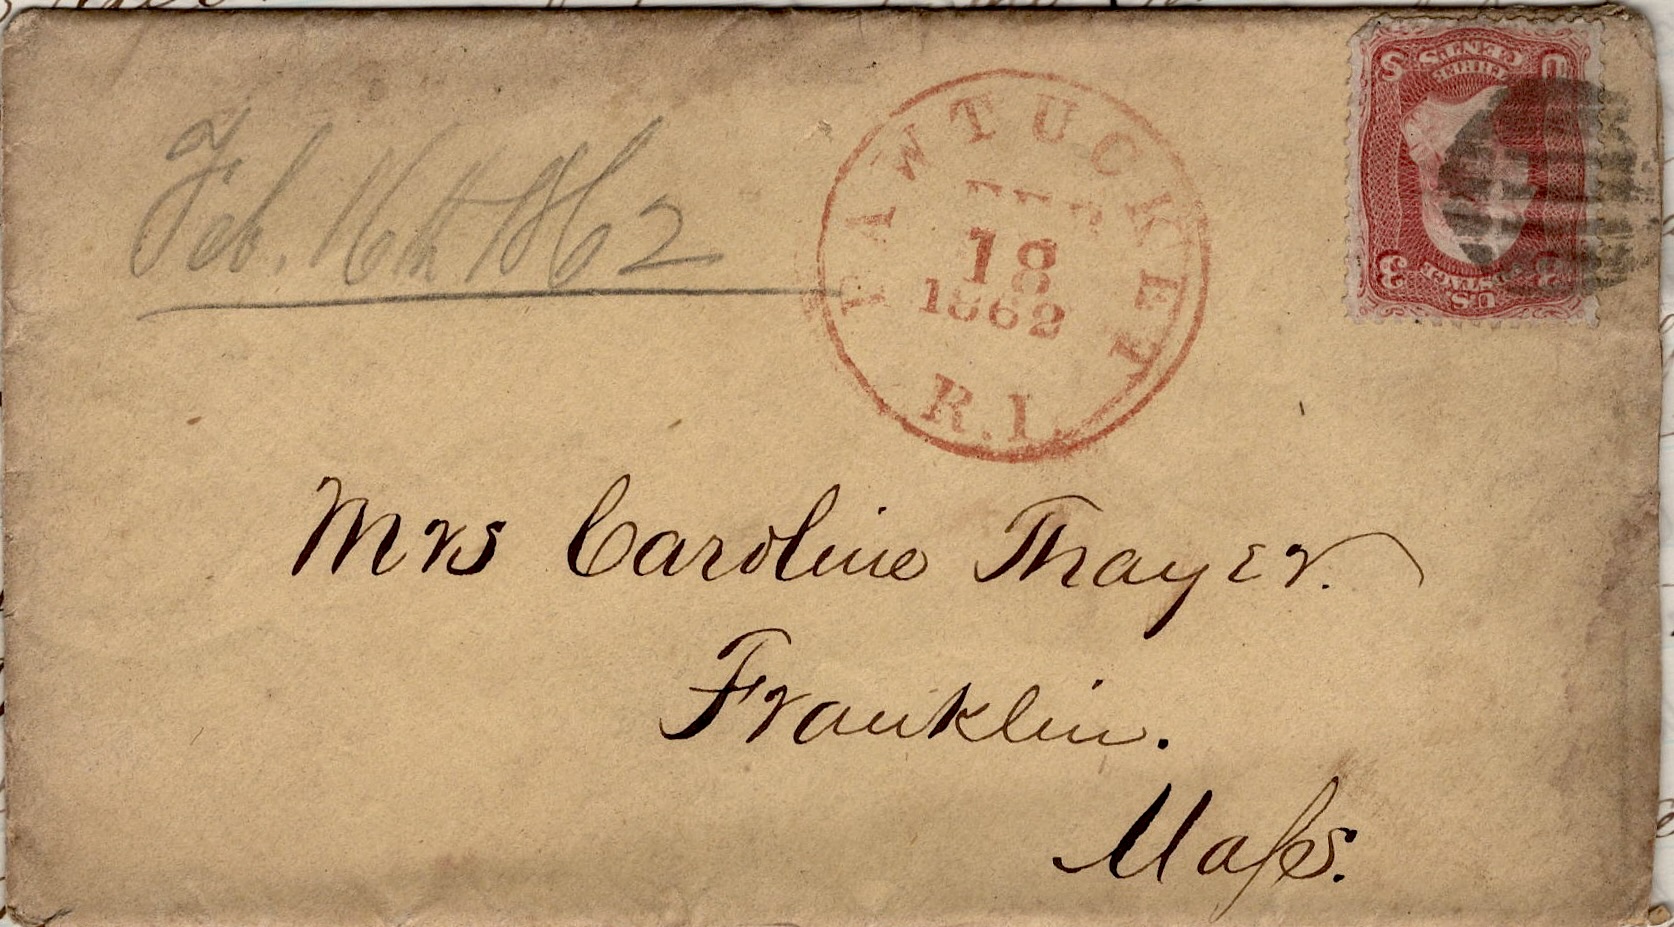 Feb. 16th 1862
PAWTUCKET
FEB
18
1862
R.I.
U S
THREE CENTS
3 3
U.S. POSTAGE
Mrs Caroline Thayer.
Franklin.
Maſss.